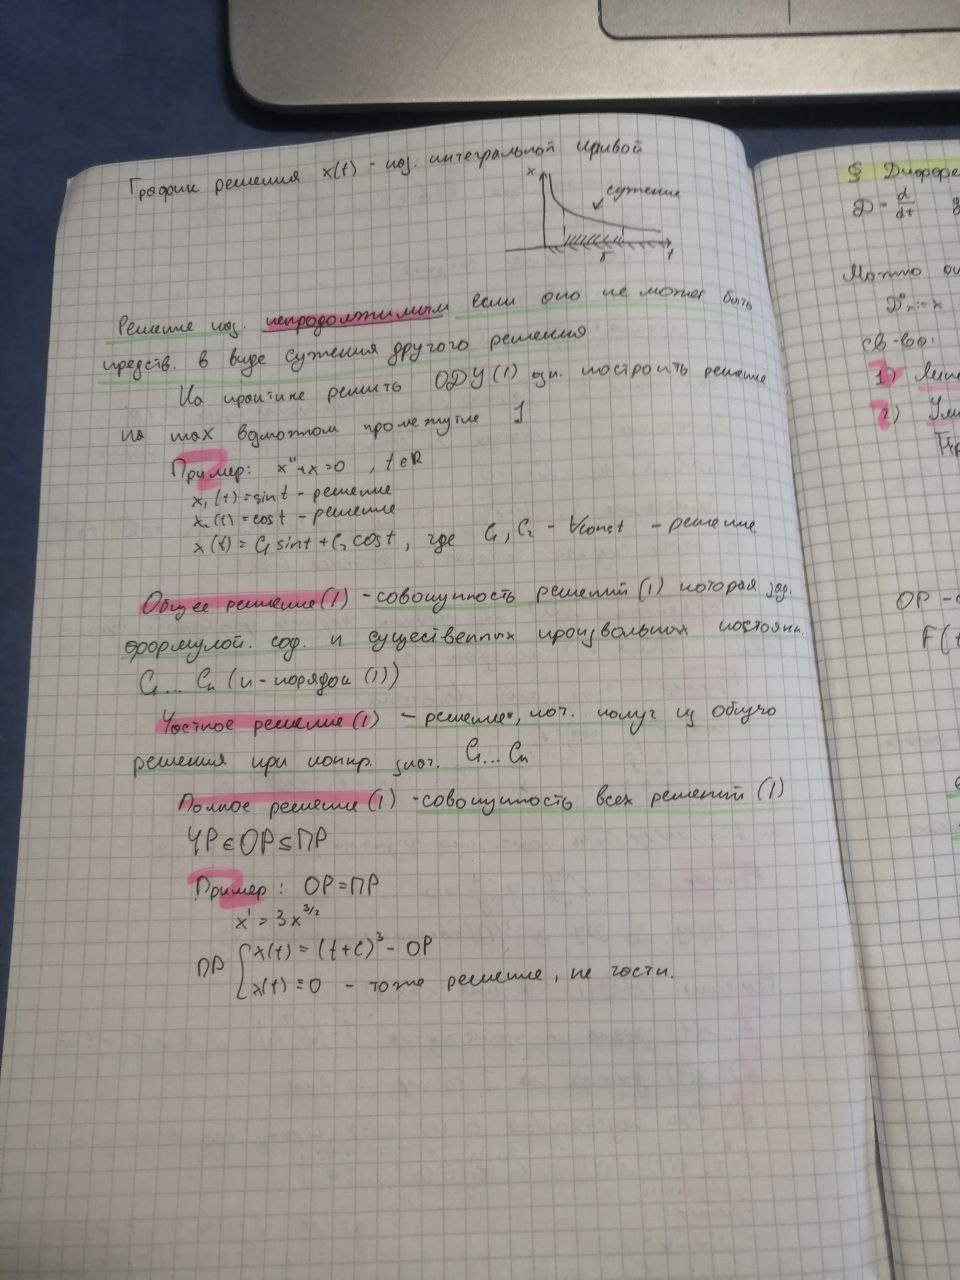 График решения x(t) - наз. интегральной кривой
x
сужение
t
Решение наз. непродолжимым если оно не может быть
предств. в виде сужения другого решения
На практике решить ОДУ(1) озн. построить решение
на max возможном промежутке
Пример: x''+x=0 , t∈R
x₁(t)=sint - решение
x₂(t)=cost - решение
x(t)= C₁sint+C₂cost , где C₁,C₂ - ∀const - решение
Общее решение(1) - совокупность решений (1) которая зад.
формулой. сод. n существенных произвольных постоянн.
C₁... Cₙ (n-порядок (1))
Частное решение(1) - решение, кот. получ из общего
решения при конкр. знач. C₁...Cₙ
Полное решение(1) - совокупность всех решений (1)
ЧР∈ОР⊆ПР
Пример: ОР=ПР
x' = 3x^{3/2}
ПР { x(t) = (t+c)³ - ОР
x(t)≡0 - тоже решение, не частн.
§ Диффере
D = d/dt
Можно
D⁰x:=x
св-во:
1) Лин
2) Ум
ОР -
F(t